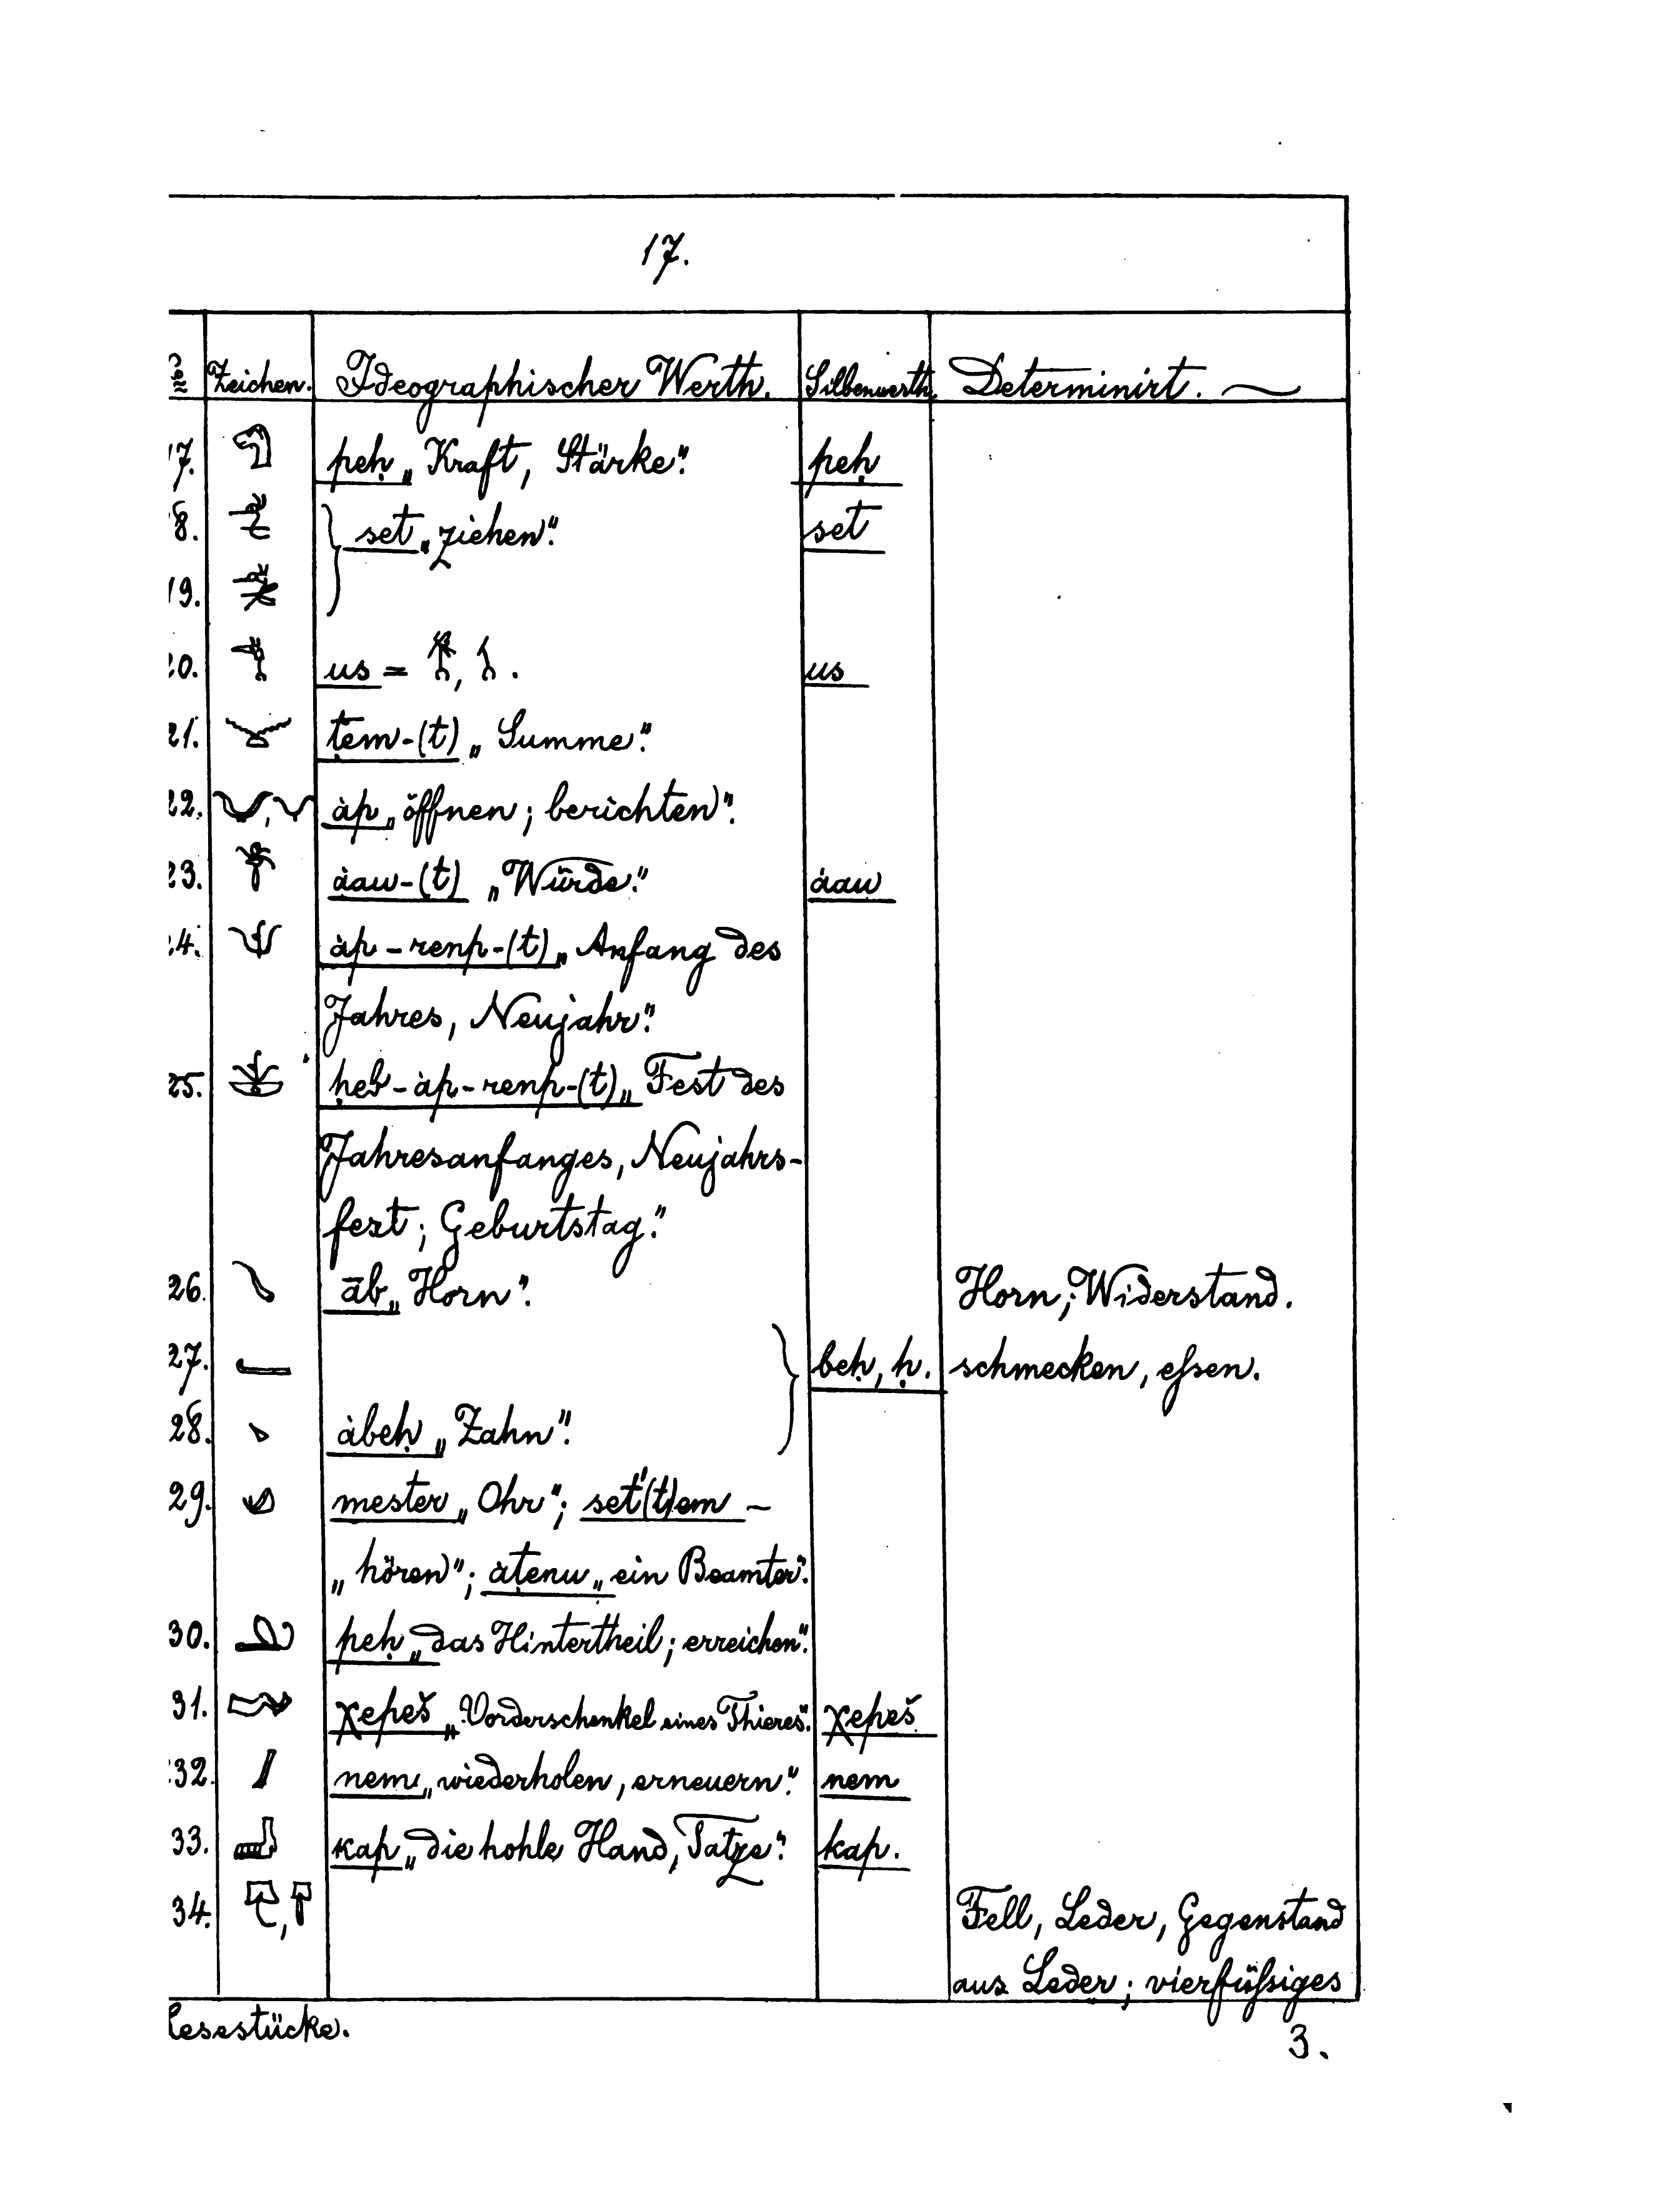 17.
№ Zeichen. Ideographischer Werth. Silbenwerth. Determinirt.
17. peḥ „Kraft, Stärke". peḥ
18. set „ziehen". set
19.
20. us = , . us
21. ṭem-(t) „Summe".
22. , àp „öffnen; berichten".
23. àau-(t) „Würde." àau
24. àp-renp-(t) „Anfang des
Jahres, Neujahr".
25. ḥeb-àp-renp-(t) „Fest des
Jahresanfanges, Neujahrs-
fest; Geburtstag."
26. āb „Horn". Horn; Widerstand.
27. beḥ, ḥ. schmecken, eſsen.
28. àbeḥ „Zahn".
29. mester „Ohr"; set'(t)em –
„hören"; àṭenu „ein Beamter".
30. peḥ „das Hintertheil; erreichen".
31. χepeš „Vorderschenkel eines Thieres". χepeš
32. nem „wiederholen, erneuern". nem
33. kap „die hohle Hand, Tatze". kap.
34. , Fell, Leder, Gegenstand
aus Leder; vierfüſsiges
Lesestücke. 3.